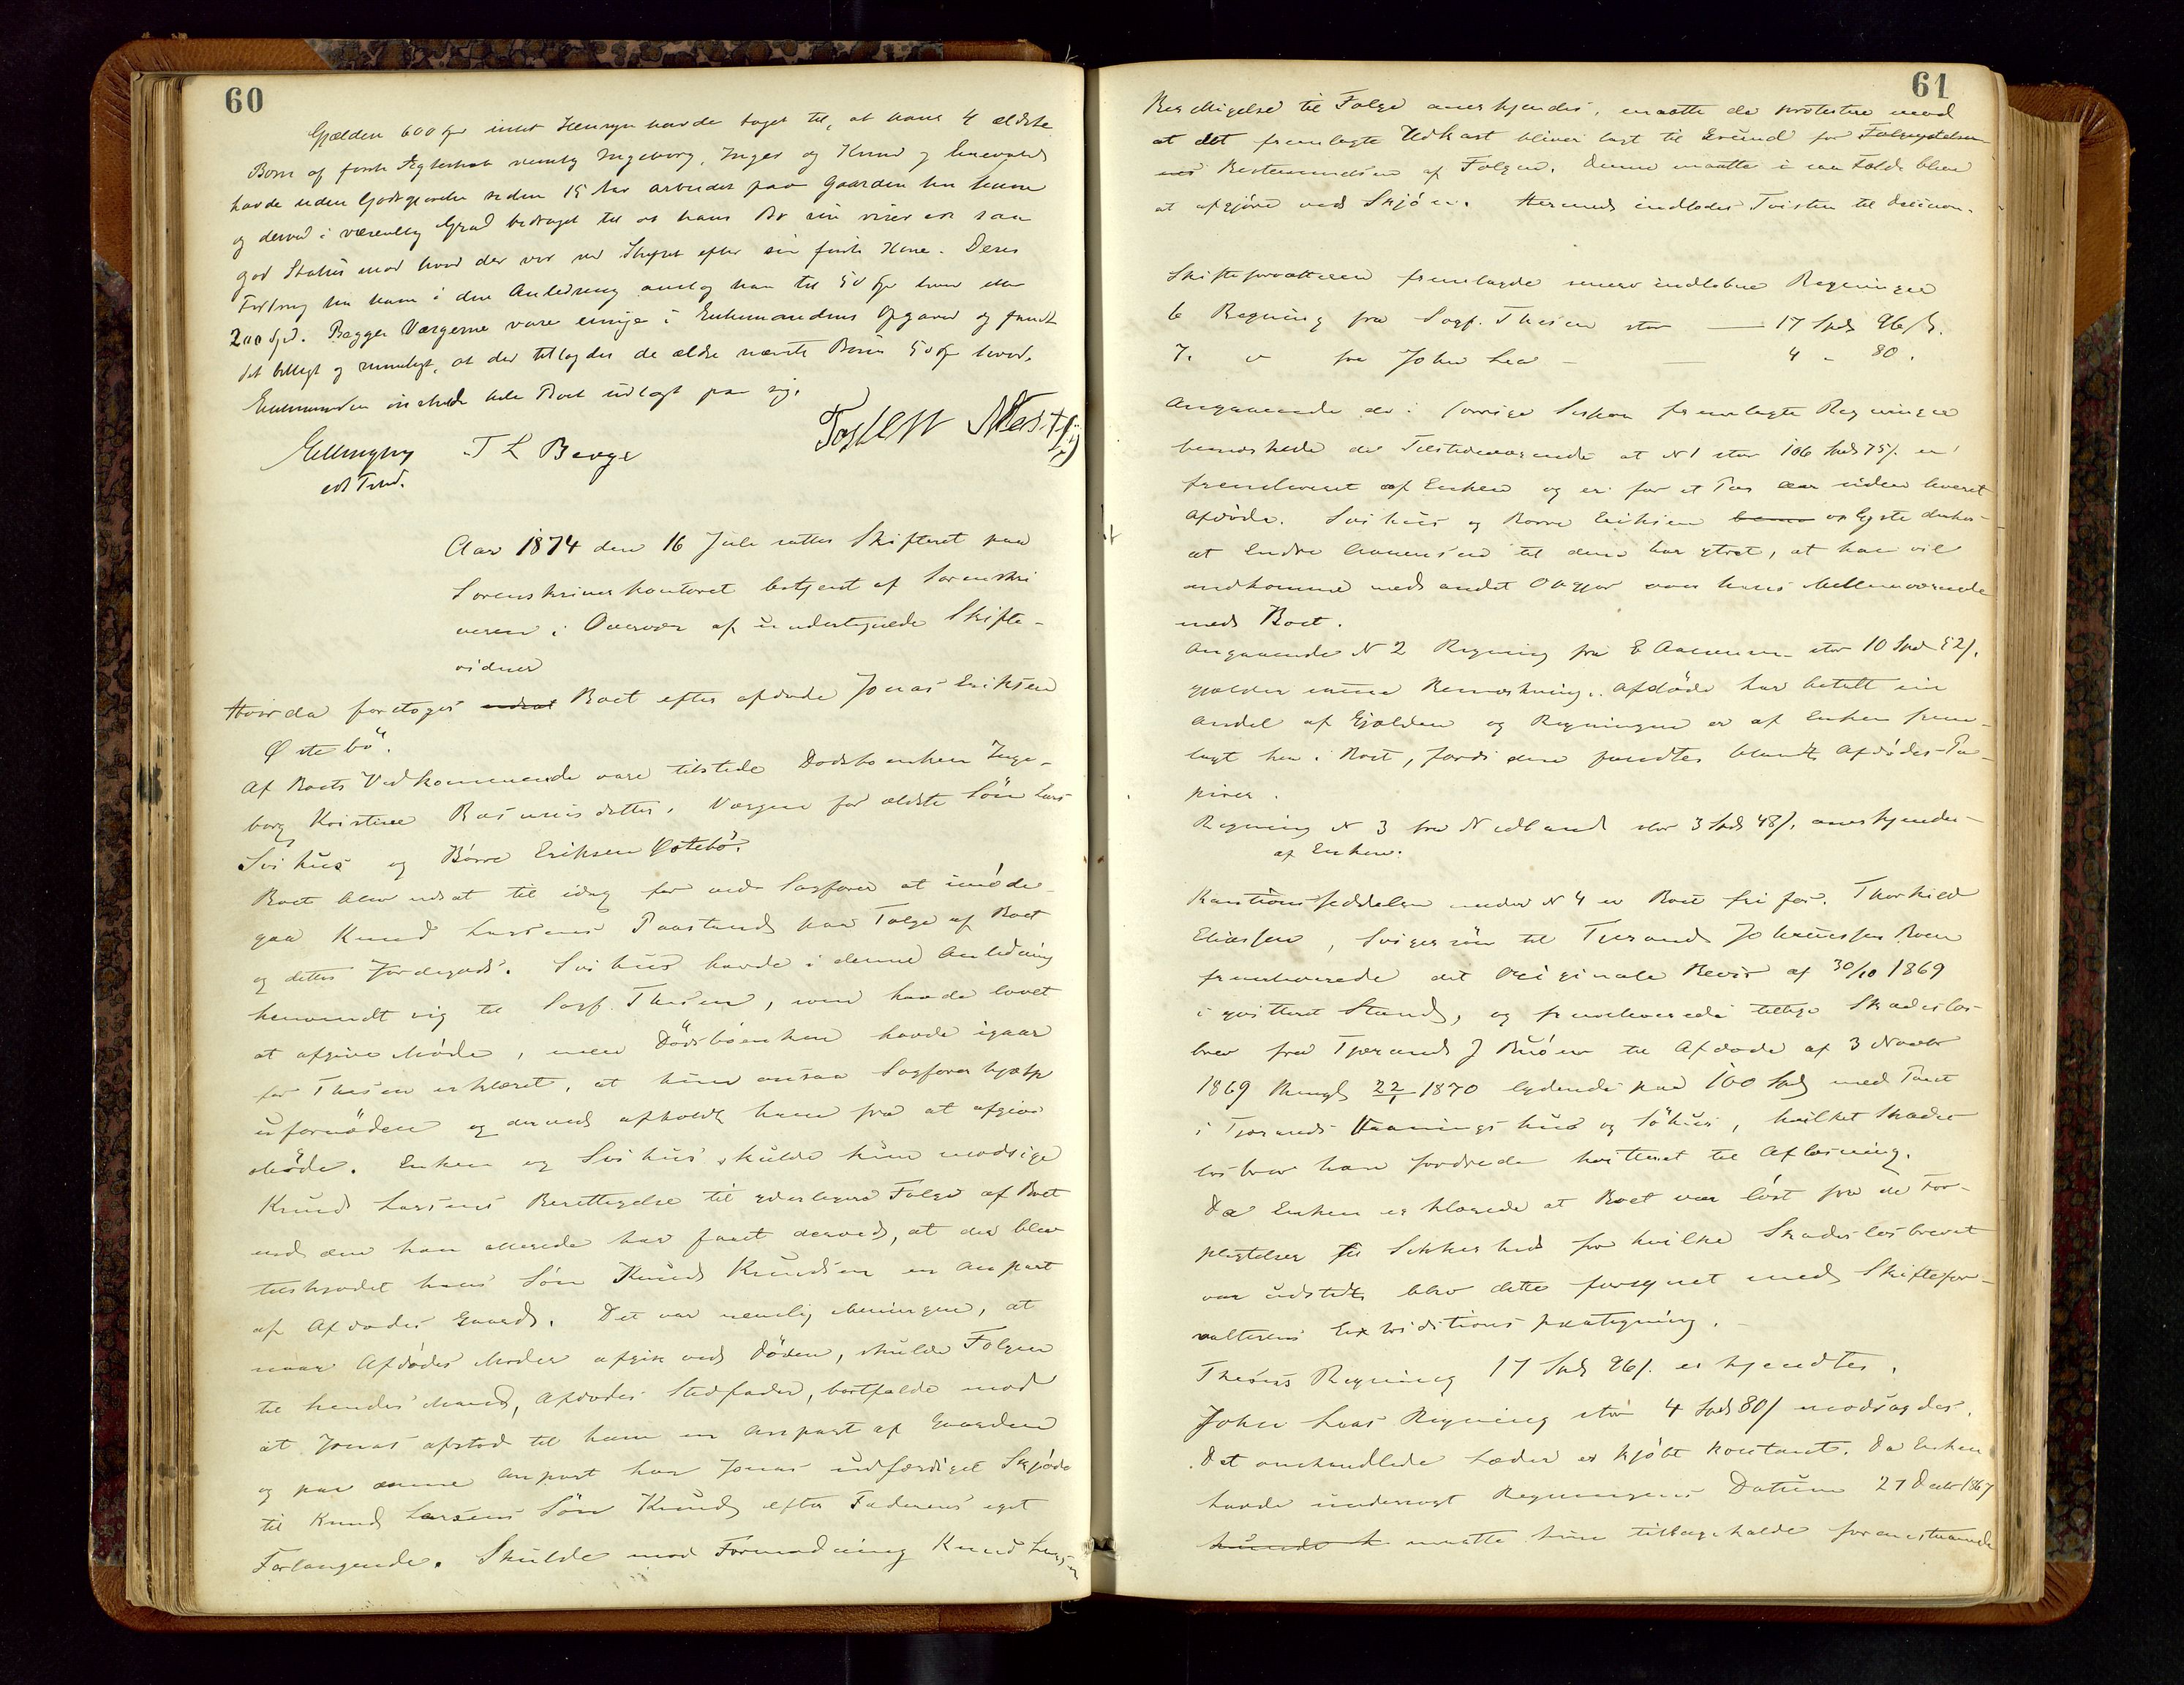 60
Gjælden 600 Spd intet Hensyn havde taget til, at hans 4 ældste
Børn af første Ægteskab nemlig Ingeborg, Inger og Knud og Enevald
havde uden Godtgjørelse siden 15 Aar arbeidet paa Gaarden
og derved i væsentlig Grad bidraget til at hans Bo
god Status mod hvad der var ved Skiftet efter sin første Kone. Deres
Fordring hos ham i den Anledning anslog han til 50 Spd hver eller
200 Spd. Begge Værgerne vare enige i Enkemandens Opgave og fandt
det billigt og rimeligt, at der tillagdes de ældre nævnte Børn 50 Spd hver.
Enkemanden ønskede hele Boet udlagt paa sig.
T L Berge
Aar 1874 den 16 Juli sattes Skifteret paa
Sorenskriverkontoret betjent af Sorenskri
veren i Overvær af undertegnede Skifte-
vidner
Hvorda foretoges Boet efter afdøde Jonas Eriksen
Østebö.
Af Boets Vedkommende vare tilstede Dødsboenken Inge-
borg Kristine Rasmusdatter, Værgen for ældste Sön Lars
Svihus og Börre Eriksen Östebö.
Boet blev udsat til idag for ved Sagfører at imöde-
gaa Knud Larsens Paastand paa Følge af Boet
og dettes Jordegods. Svihus havde i denne Anledning
henvendt sig til Sagf. Thesen, som havde lovet
at afgive Möde, men Dödsböenken havde igaar
for Thesen erklæret, at hun ansaa Sagførerhjælp
ufornöden og derved afholdt ham fra at afgive
Möde. Enken og Svihus skulde kun modsige
Knud Larsens Berettigelse til yderligere Følge af Boet
end den han allerede har faaet derved, at der blev
tilskjödet hans Sön Knud Knudsen en Anpart
af Afdødes Gaard. Det var nemlig Meningen, at
naar Afdödes Moder afgik ved Döden, skulde Følgen
til hendes Mand, Afdødes Stedfader, bortfalde mod
at Jonas afstod til ham en Anpart af Gaarden
og paa denne Anpart har Jonas udfærdiget Skjöde
til Knud Larsens Sön Knud efter Faderens eget
Forlangende. Skulde mod Formodning Knud Larsens
61
Berettigelse til Følge anerkjendes, maatte de protestere mod
at det fremlagte Udkast bliver lagt til Grund for Følgeydelsen
Bestemmelsen af Følgen. Denne maatte i saa Fald blive
at afgjöre ved Skjön. Hermed indlodes Tvisten til Decision.
Skifteforvalteren fremlagde senere indløbne Regninger
6 Regning fra Sagf. Thesen stor — 17 Spd 96 ß.
7. " fra John Lea — — 4 " 80.
Angaaende de i forrige Session fremlagte Regninger
bemærkede de Tilstedeværende at N 1 stor 106 Spd 75 ß er
fremleveret af Enken og er for et Par Aar siden leveret
Afdöde. Svihus og Börre Eriksen oplyste derhos
at Endre Aanensen til dem har ytret, at han vil
indkomme med andet Opgjör over hans Mellemværende
med Boet.
Angaaende N 2 Regning fra E Aanensen stor 10 Spd 52 ß.
gjælder samme Bemærkning. Afdöde har betalt sin
Andel af Gjælden og Regningen er af Enken frem-
lagt her i Boet, fordi den fandtes blandt Afdödes Pa-
pirer.
Regning N 3 fra Nedland stor 3 Spd 48 ß. anerkjendes
af Enken.
Kautionsseddelen under N 4 er Boet fri for. Thorkild
Eliassen, Svigersön til Tjerand
fremleverede det Originale Bevis af 30/10 1869
i qvitteret Stand, og fremleverede tillige Skadeslös-
brev fra Tjerand J til Afdøde af 3 Novbr
1869 thinglæst 22/1 1870 lydende paa 100 Spd med Pant
i Tjerands Vaaningshus og Söhus, hvilket Skades
lösbrev han fordrede kvitteret til Aflæsning.
Da Enken erklærede at Boet var löst fra de For-
pligtelser til Sikkerhed for hvilke Skadeslösbrevet
var udstedt, blev dette forsynet med Skiftefor-
valterens Extraditions paategning.
Thesens Regning 17 Spd 96 ß. erkjendtes.
John Leas Regning stor 4 Spd 80 ß modsagdes.
Det omhandlede Læder er kjöbt kontant. Da Enken
havde undersögt Regningens Datum 27 Decbr 1867
maatte hun tilbageholde foranstaaende